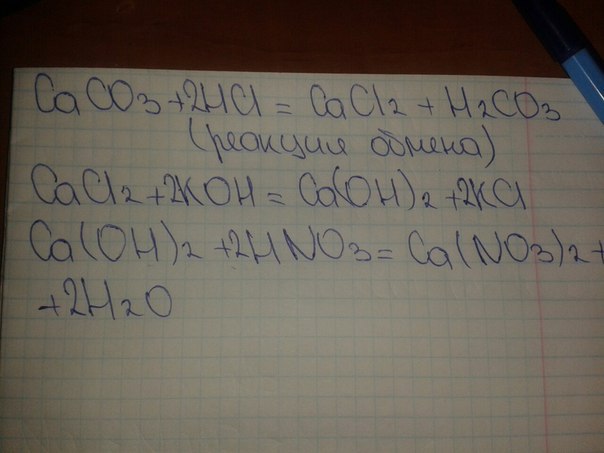 CaCO3+2HCl = CaCl2 + H2CO3
(реакция обмена)
CaCl2 +2KOH = Ca(OH)2 +2KCl
Ca(OH)2 +2HNO3 = Ca(NO3)2 +
+2H2O